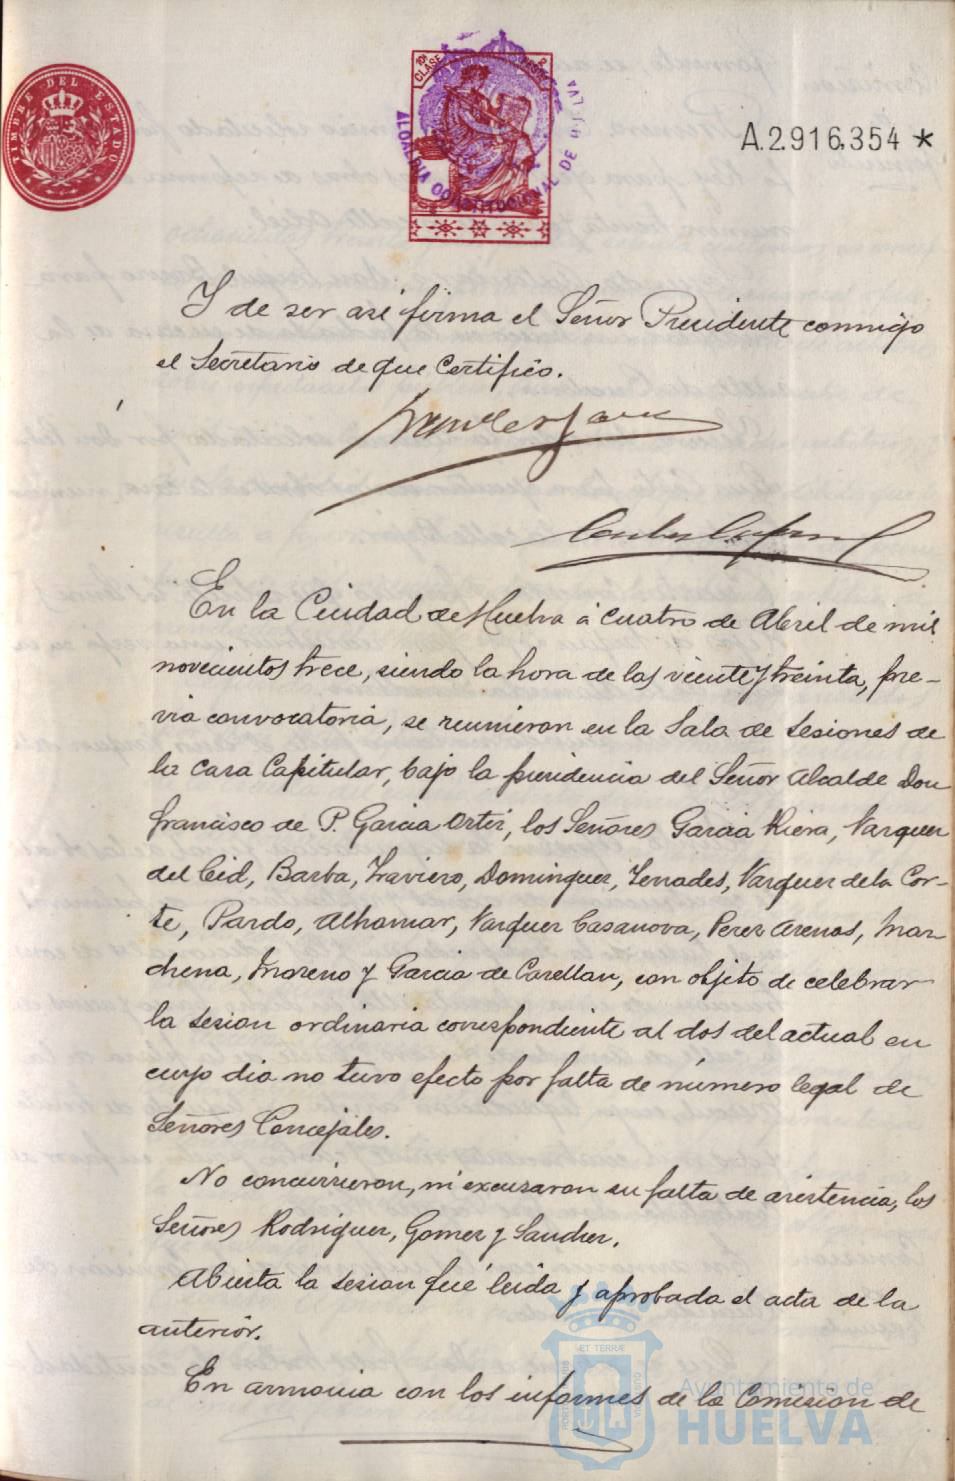 TIMBRE DEL ESTADO
10ª CLASE
ALCALDIA CONSTITUCIONAL DE HUELVA
A.2.916,354 *
Y de ser asi firma el Señor Presidente conmigo
el Secretario de que certifico.
En la Ciudad de Huelva á cuatro de Abril de mil
novecientos trece, siendo la hora de las veinte y treinta, pre-
via convocatoria, se reunieron en la Sala de Sesiones de
la Casa Capitular, bajo la presidencia del Señor Alcalde Don
Francisco de P. Garcia Ortiz, los Señores Garcia Riera, Vazquez
del Cid, Barba, Traviero, Dominguez, Tenades, Vazquez de la Cor-
te, Pardo, Alhamar, Vazquez Casanova, Perez Arenas, Mar-
chena, Moreno y Garcia de Castellan, con objeto de celebrar
la sesion ordinaria correspondiente al dos del actual en
cuyo dia no tuvo efecto por falta de número legal de
Señores Concejales.
No concurrieron, ni excusaron su falta de asistencia, los
Señores Rodriguez, Gomez y Sanchez.
Abierta la sesion fué leida y aprobada el acta de la
anterior.
En armonia con los informes de la Comision de
ET TERRÆ
Ayuntamiento de
HUELVA